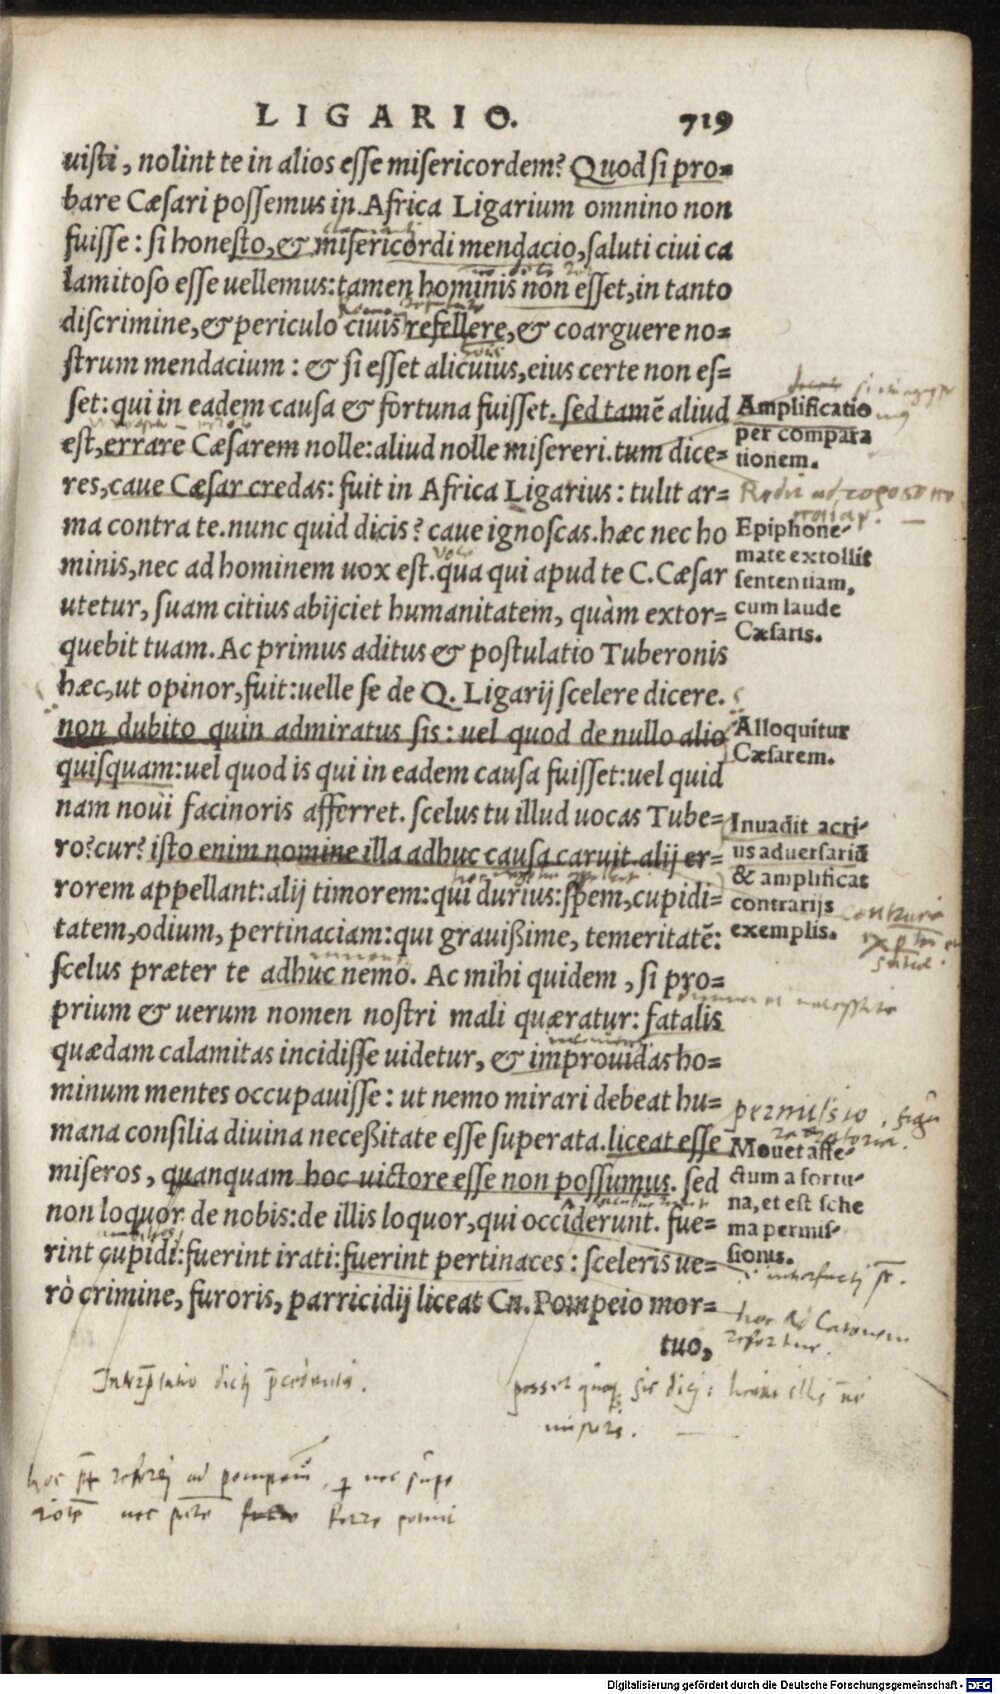 LIGARIO. 719
uisti, nolint te in alios esse misericordem? Quod si pro=
bare Cæsari possemus in Africa Ligarium omnino non
fuisse: si honesto, & misericordi mendacio, saluti ciui ca
lamitoso esse uellemus: tamen hominis non esset, in tanto
discrimine, & periculo ciuis refellere, & coarguere no=
strum mendacium: & si esset alicuius, eius certe non es=
set: qui in eadem causa & fortuna fuisset. sed tamē aliud
est, errare Cæsarem nolle: aliud nolle misereri. tum dice=
res, caue Cæsar credas: fuit in Africa Ligarius: tulit ar=
ma contra te. nunc quid dicis? caue ignoscas. hæc nec ho
minis, nec ad hominem uox est. qua qui apud te C. Cæsar
utetur, suam citius abijciet humanitatem, quàm extor=
quebit tuam. Ac primus aditus & postulatio Tuberonis
hæc, ut opinor, fuit: uelle se de Q. Ligarij scelere dicere.
non dubito quin admiratus sis: uel quod de nullo alio
quisquam: uel quod is qui in eadem causa fuisset: uel quid
nam noui facinoris afferret. scelus tu illud uocas Tube=
ro? cur? isto enim nomine illa adhuc causa caruit. alij er=
rorem appellant: alij timorem: qui durius: spem, cupidi=
tatem, odium, pertinaciam: qui grauißime, temeritatē:
scelus præter te adhuc nemo. Ac mihi quidem, si pro=
prium & uerum nomen nostri mali quæratur: fatalis
quædam calamitas incidisse uidetur, & improuidas ho=
minum mentes occupauisse: ut nemo mirari debeat hu=
mana consilia diuina neceßitate esse superata. liceat esse
miseros, quanquam hoc uictore esse non possumus. sed
non loquor de nobis: de illis loquor, qui occiderunt. fue=
rint cupidi: fuerint irati: fuerint pertinaces: sceleris ue=
rò crimine, furoris, parricidij liceat Cn. Pompeio mor=
tuo,
Amplificatio
per compara
tionem.
Epiphone-
mate extollit
sententiam,
cum laude
Cæsaris.
Alloquitur
Cæsarem.
Inuadit acri-
us aduersariū
& amplificat
contrarijs
exemplis.
permissio
Mouet affe-
ctum a fortu-
na, et est sche
ma permis-
sionis.
hoc ad Catonem
refertur.
hoc ad pompeiū